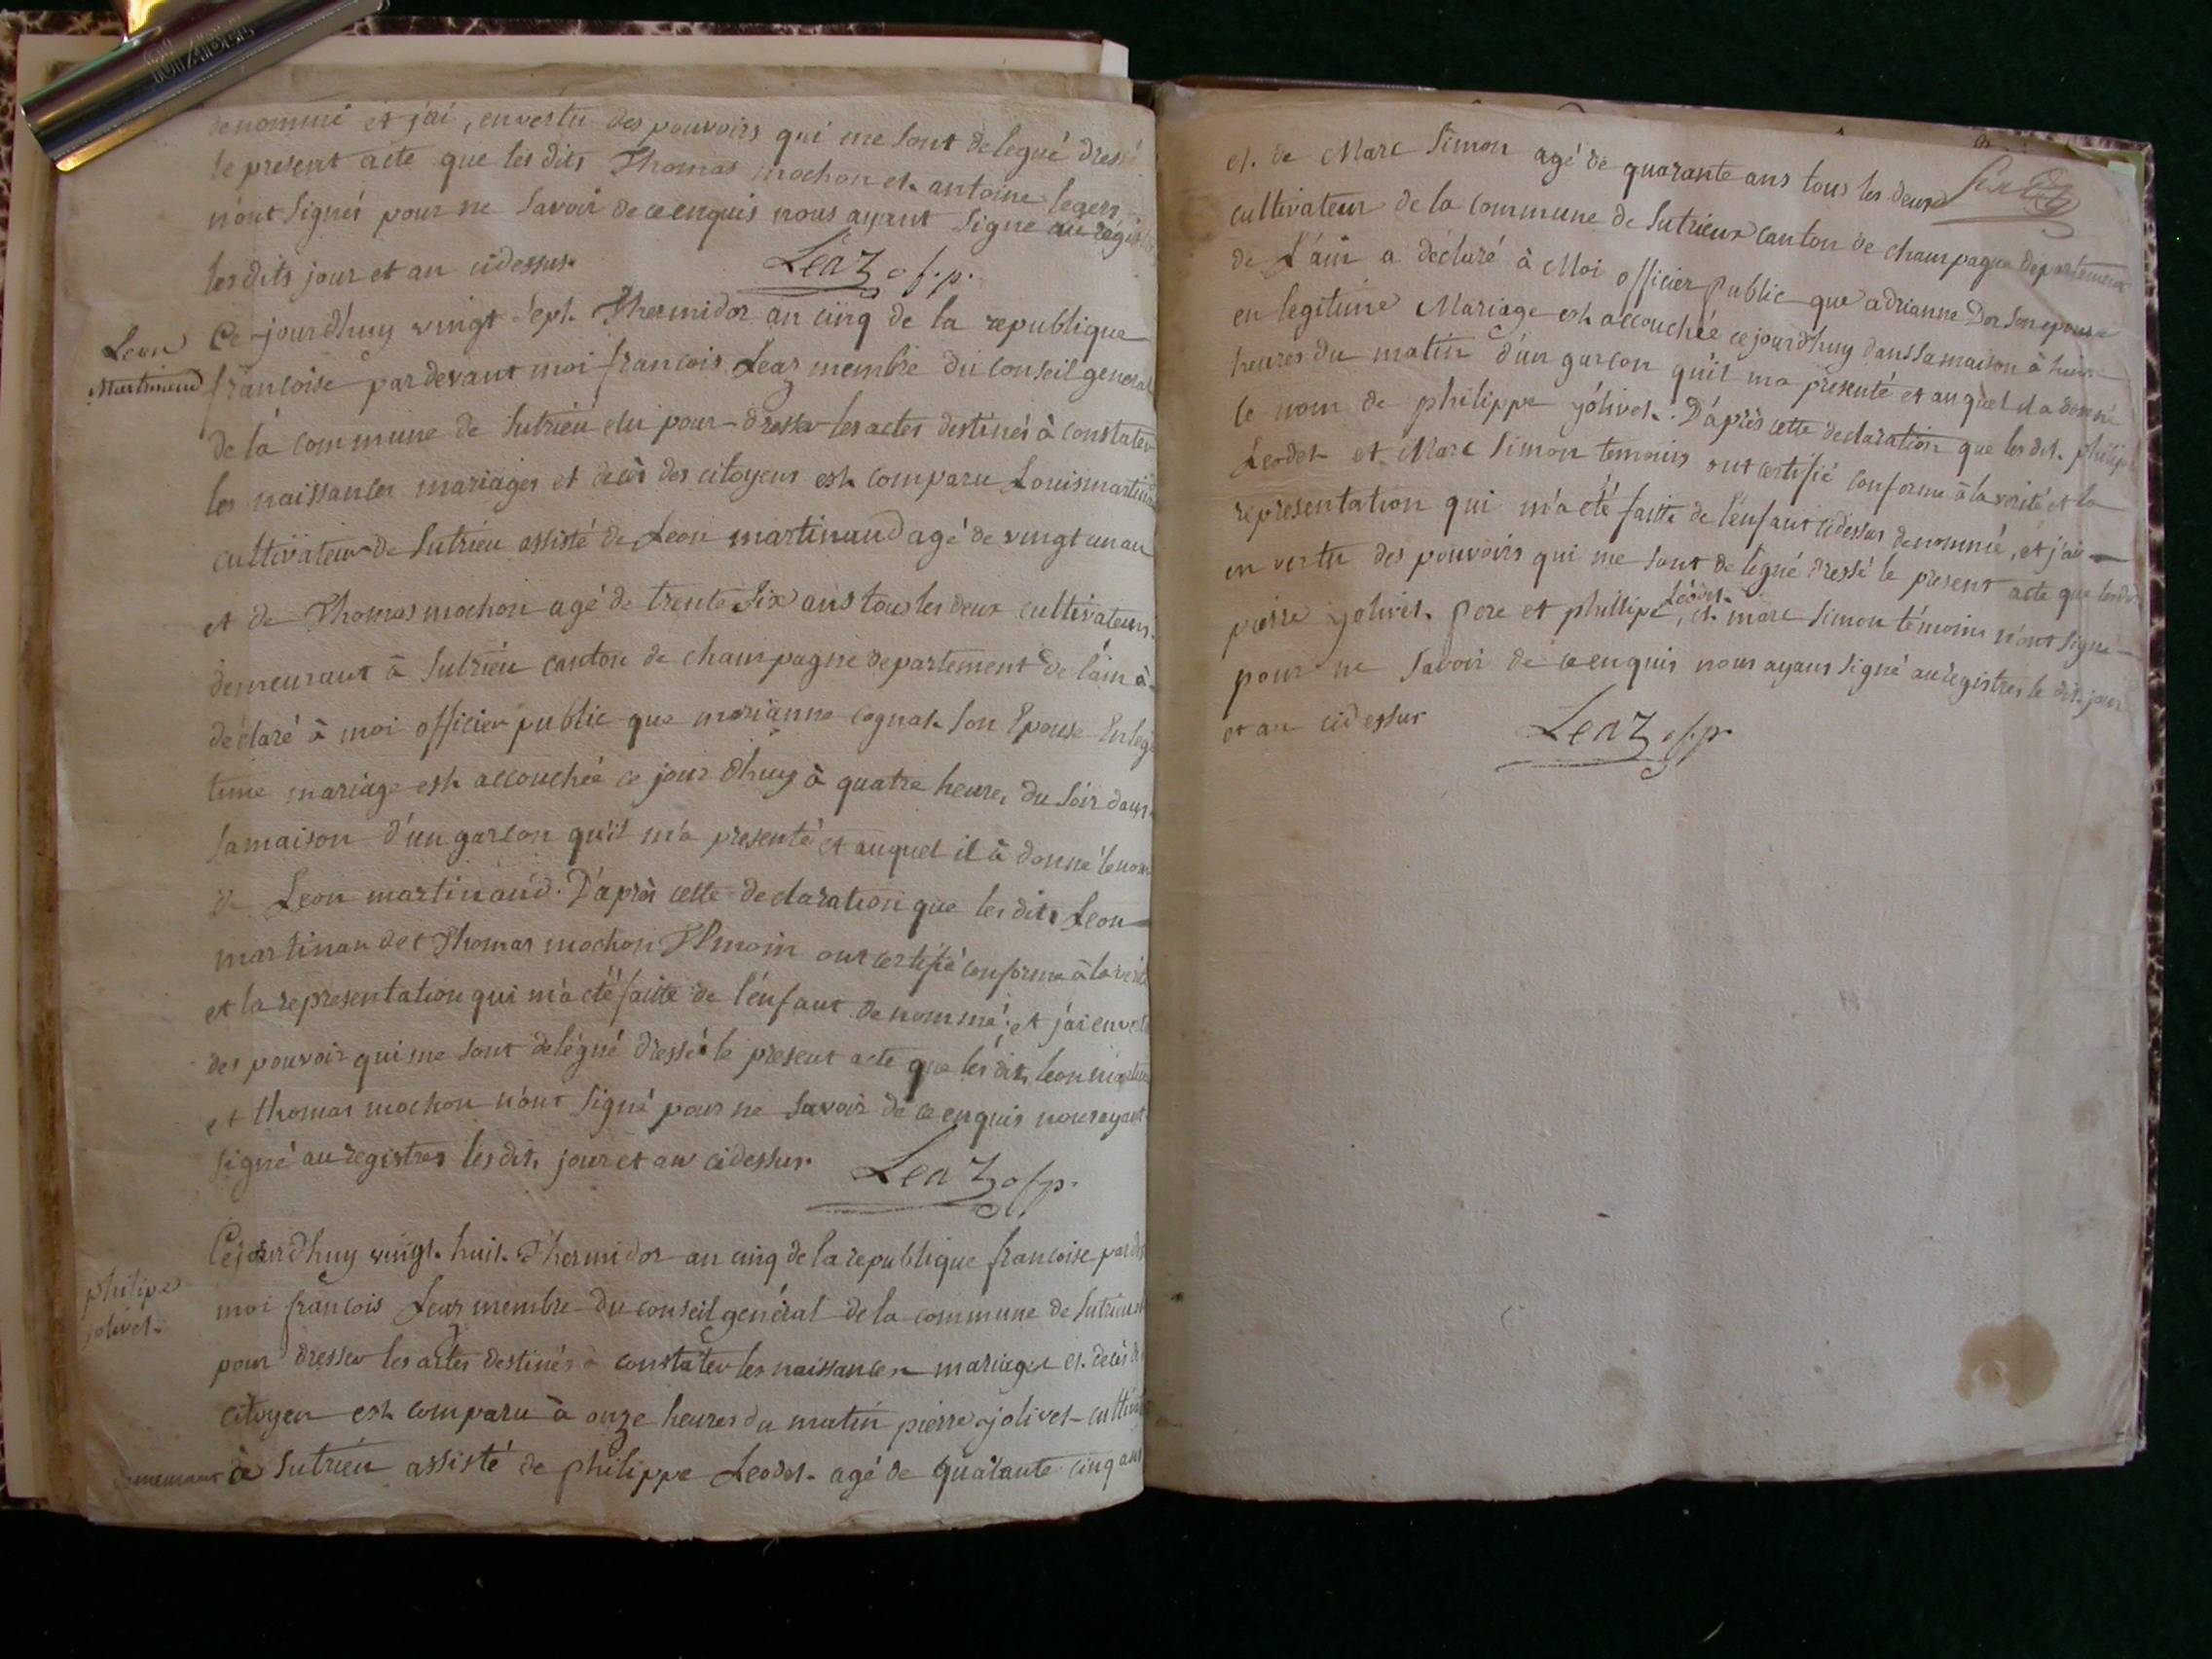 denommé et j'ai, en vertu des pouvoirs qui me sont delegué dressé
le present acte que les dits Thomas mochon et antoine legers
n'ont signés pour ne savoir de ce enquis nous ayant signe au regis
les dits jour et an cidessus. Learz of. p.
Leon
Martinaud
Ce jourdhuy vingt sept Thermidor an cinq de la republique
francoise par devant moi francois Learz membre du conseil general
de la commune de Sutrieu elu pour dresser les actes destinés à constater
les naissances mariages et deces des citoyens est comparu Louis martinaud
cultivateur de Sutrieu assisté de Leon martinaud agé de vingt un an
et de Thomas mochon agé de trente six ans tous les deux cultivateurs
demeurant à Sutrieu canton de champagne departement de l'ain à
déclaré à moi officier public que marianne cognat son Epouse En legi
time mariage est accouchée ce jour dhuy à quatre heures du soir dans
sa maison d'un garcon qu'il m'a presenté et auquel il à donné le nom
de Leon martinaud. D'après cette declaration que les dits Leon
martinaud et Thomas mochon Temoin ont certifié conforme à la vérité
et la representation qui m'a eté faitte de l'enfant denommé, et j'ai en vertu
des pouvoir qui me sont delégué dressé le present acte que les dits leon
et thomas mochon n'ont signé pour ne savoir de ce enquis nous ayant
signé au registres les dits jour et an cidessus. Learz of p.
philipe
jolivet
Cejourdhuy vingt huit Thermidor an cinq de la republique francoise par
moi francois Learz membre du conseil general de la commune de Sutrieu
pour dresser les actes destinés à constater les naissances mariages et deces
citoyen est comparu à onze heures du matin pierre jolivet
de Sutrieu assisté de philippe Leodet agé de quarante cinq ans
et de Marc Simon agé de quarante ans tous les deux
cultivateur de la commune de Sutrieux canton de champagne departement
de L'ain a declaré à Moi officier public que adrianne Dor son epouse
en legitime Mariage est accouchée ce jourdhuy dans sa maison à huit
heures du matin d'un garcon qu'il ma presenté et auquel il a donné
le nom de philippe jolivet. D'après cette declaration que les dit philipe
Leodet et Marc Simon temoins ont certifié conforme à la verité et la
representation qui m'a eté faitte de l'enfant cidessus denommé, et j'ai
en vertu des pouvoirs qui me sont delegué dressé le present acte que les dit
pierre jolivet pere et philipe Leodet, et marc Simon témoins n'ont signé
pour ne savoir de ce enquis nous ayans signé au registres le dit jour
et an cidessus Learz of. p.